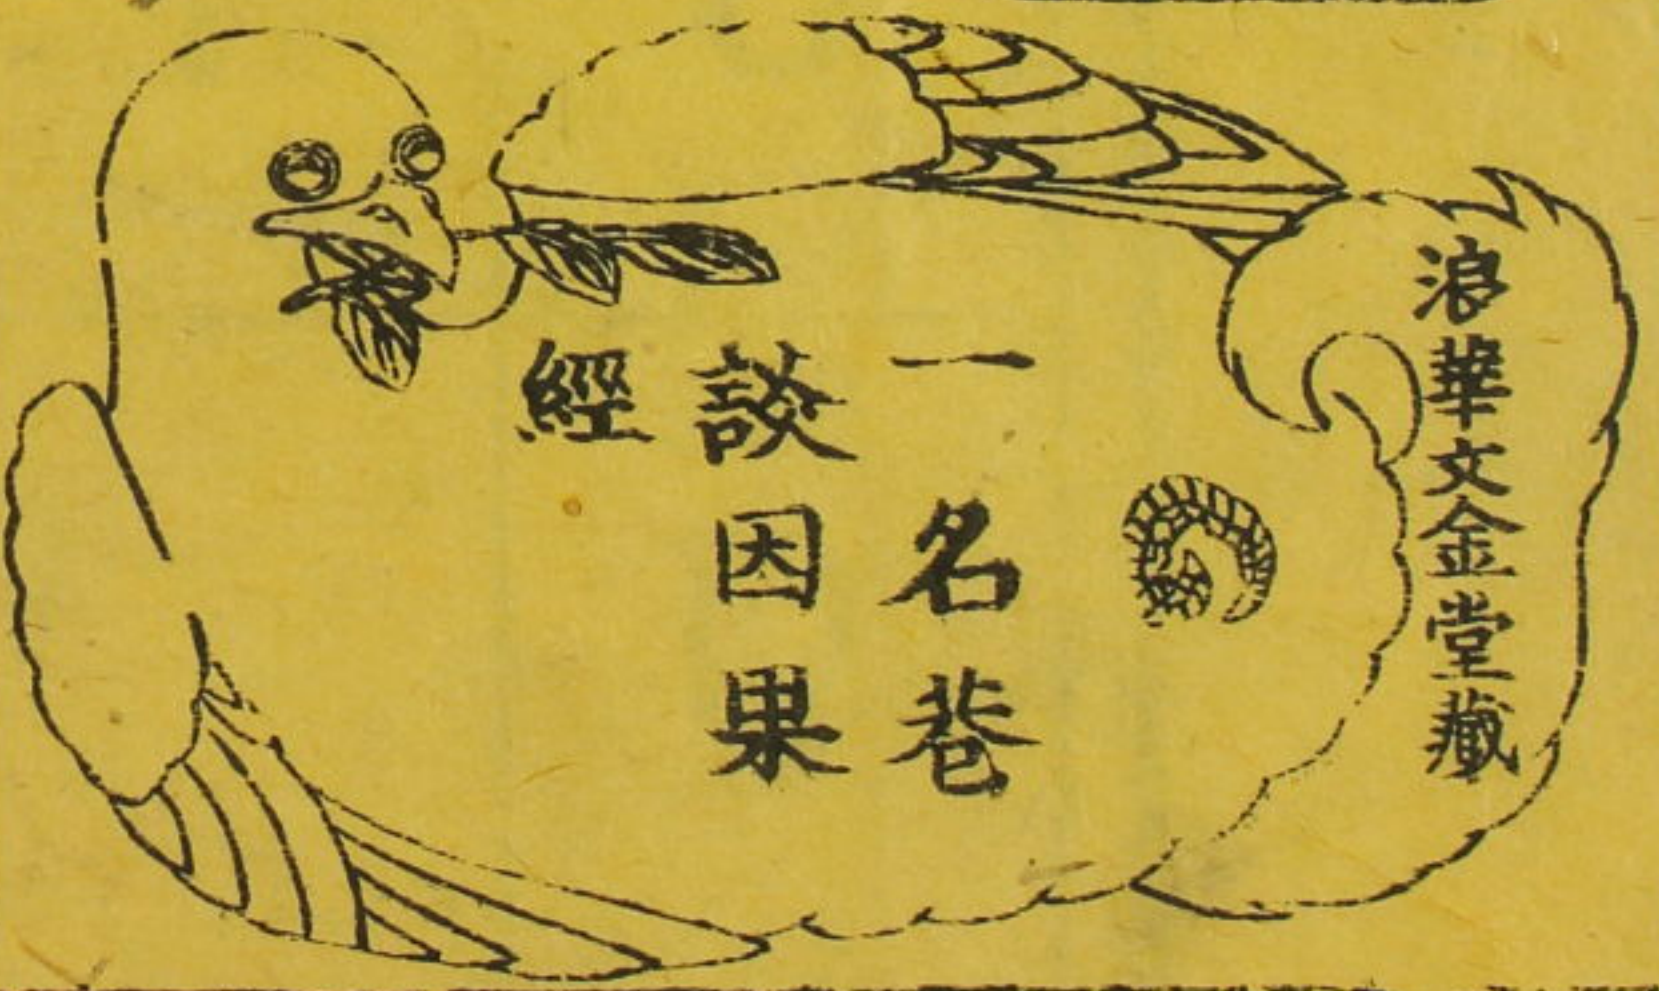 浪華文金堂藏
一名巷
談因果
經